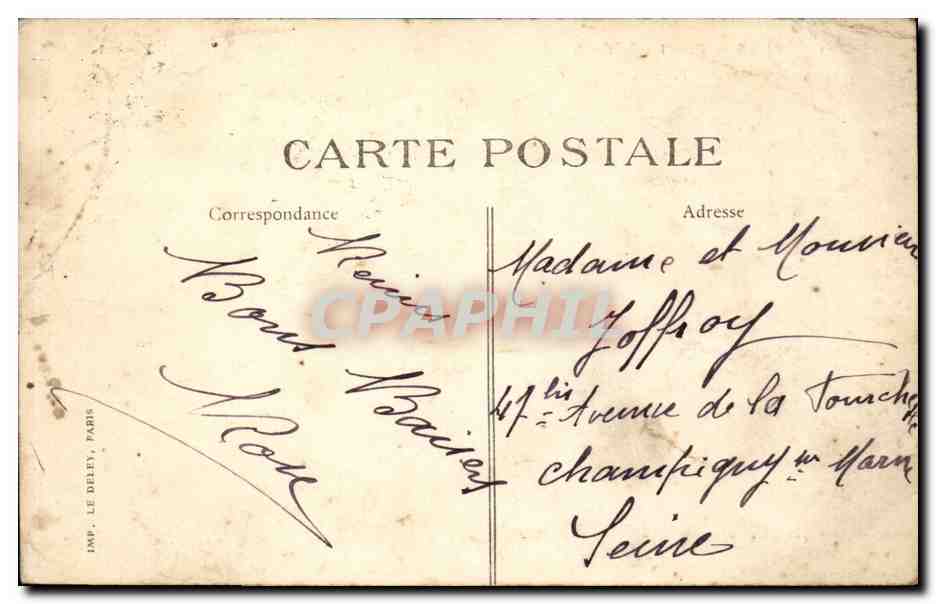 CARTE POSTALE
Correspondance
Adresse
Bons Baisers
Rose
Madame et Monsieur
Joffroy
47 bis Avenue de la Fourchette
Champigny sur Marne
Seine
IMP. LE DELEY, PARIS
CPAPHIL